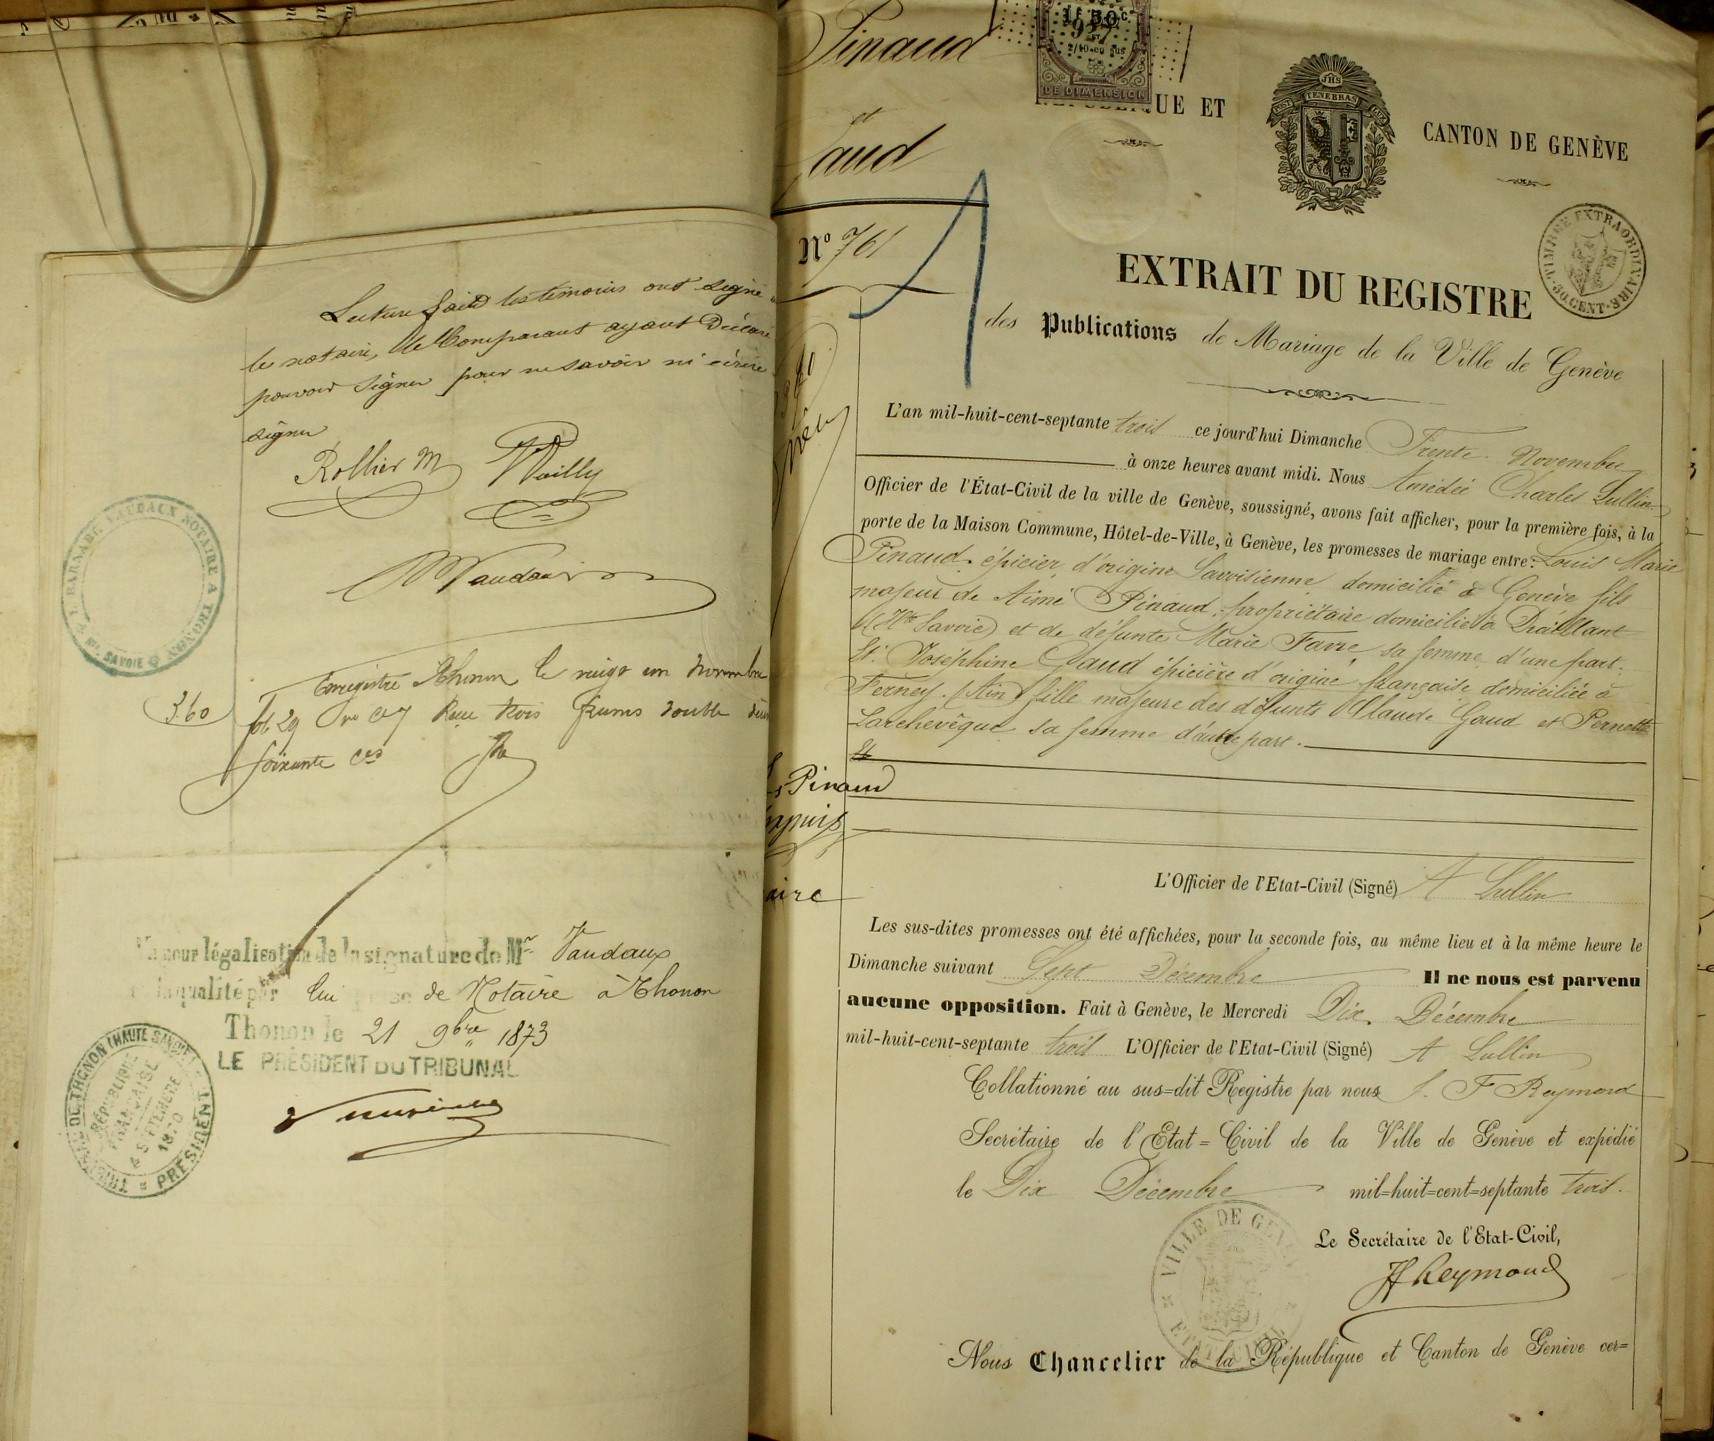 Lecture faite les témoins ont signé
le notaire, le Comparant ayant Déclaré
pouvoir signer pour ne savoir ni écrire
signer
Rollier M
Vaudaux
L BARNABE VAUDAUX NOTAIRE A THONON
HTE SAVOIE
Enregistré Thonon le vingt un novembre
3.60
fol 29 Vo Co 7 Reçu trois francs double
soixante ces
Vu pour légalisation de la signature de Mr Vaudaux
qualité par lui de Notaire à Thonon
Thonon le 21 9bre 1873
LE PRÉSIDENT DU TRIBUNAL
TRIBUNAL DE THONON (HAUTE SAVOIE) PRÉSIDENT
RÉPUBLIQUE
FRANÇAISE
4 SEPTEMBRE
1870
Pinaud
et
Gaud
No 761
Pinaud
1F 50C
927
2/10 en sus
DE DIMENSION
RÉPUBLIQUE ET
CANTON DE GENÈVE
JHS
POST TENEBRAS LUX
TIMBRE EXTRAORDINAIRE
30 CENT.
EXTRAIT DU REGISTRE
des Publications de Mariage de la Ville de Genève
L'an mil-huit-cent-septante trois ce jourd'hui Dimanche Trente Novembre
à onze heures avant midi. Nous Amédée Charles Lullin
Officier de l'État-Civil de la ville de Genève, soussigné, avons fait afficher, pour la première fois, à la
porte de la Maison Commune, Hôtel-de-Ville, à Genève, les promesses de mariage entre: Louis Marie
Pinaud, épicier, d'origine Savoisienne, domicilié à Genève fils
majeur de Aimé Pinaud, propriétaire domicilié à Draillant
(Hte Savoie) et de défunte Marie Favre, sa femme, d'une part.
Et Joséphine Gaud épicière d'origine française, domiciliée à
Ferney (Ain) fille majeure des défunts Claude Gaud et Pernette
Larchevêque sa femme d'autre part.
Et
L'Officier de l'Etat-Civil (Signé) A Lullin
Les sus-dites promesses ont été affichées, pour la seconde fois, au même lieu et à la même heure le
Dimanche suivant Sept Décembre Il ne nous est parvenu
aucune opposition. Fait à Genève, le Mercredi Dix Décembre
mil-huit-cent-septante trois L'Officier de l'Etat-Civil (Signé) A Lullin
Collationné au sus=dit Registre par nous J. F Reymond
Secrétaire de l'Etat=Civil de la Ville de Genève et expédié
le Dix Décembre mil=huit=cent=septante trois.
Le Secrétaire de l'Etat-Civil,
JF Reymond
VILLE DE GENÈVE
ETAT CIVIL
Nous Chancelier de la République et Canton de Genève cer=